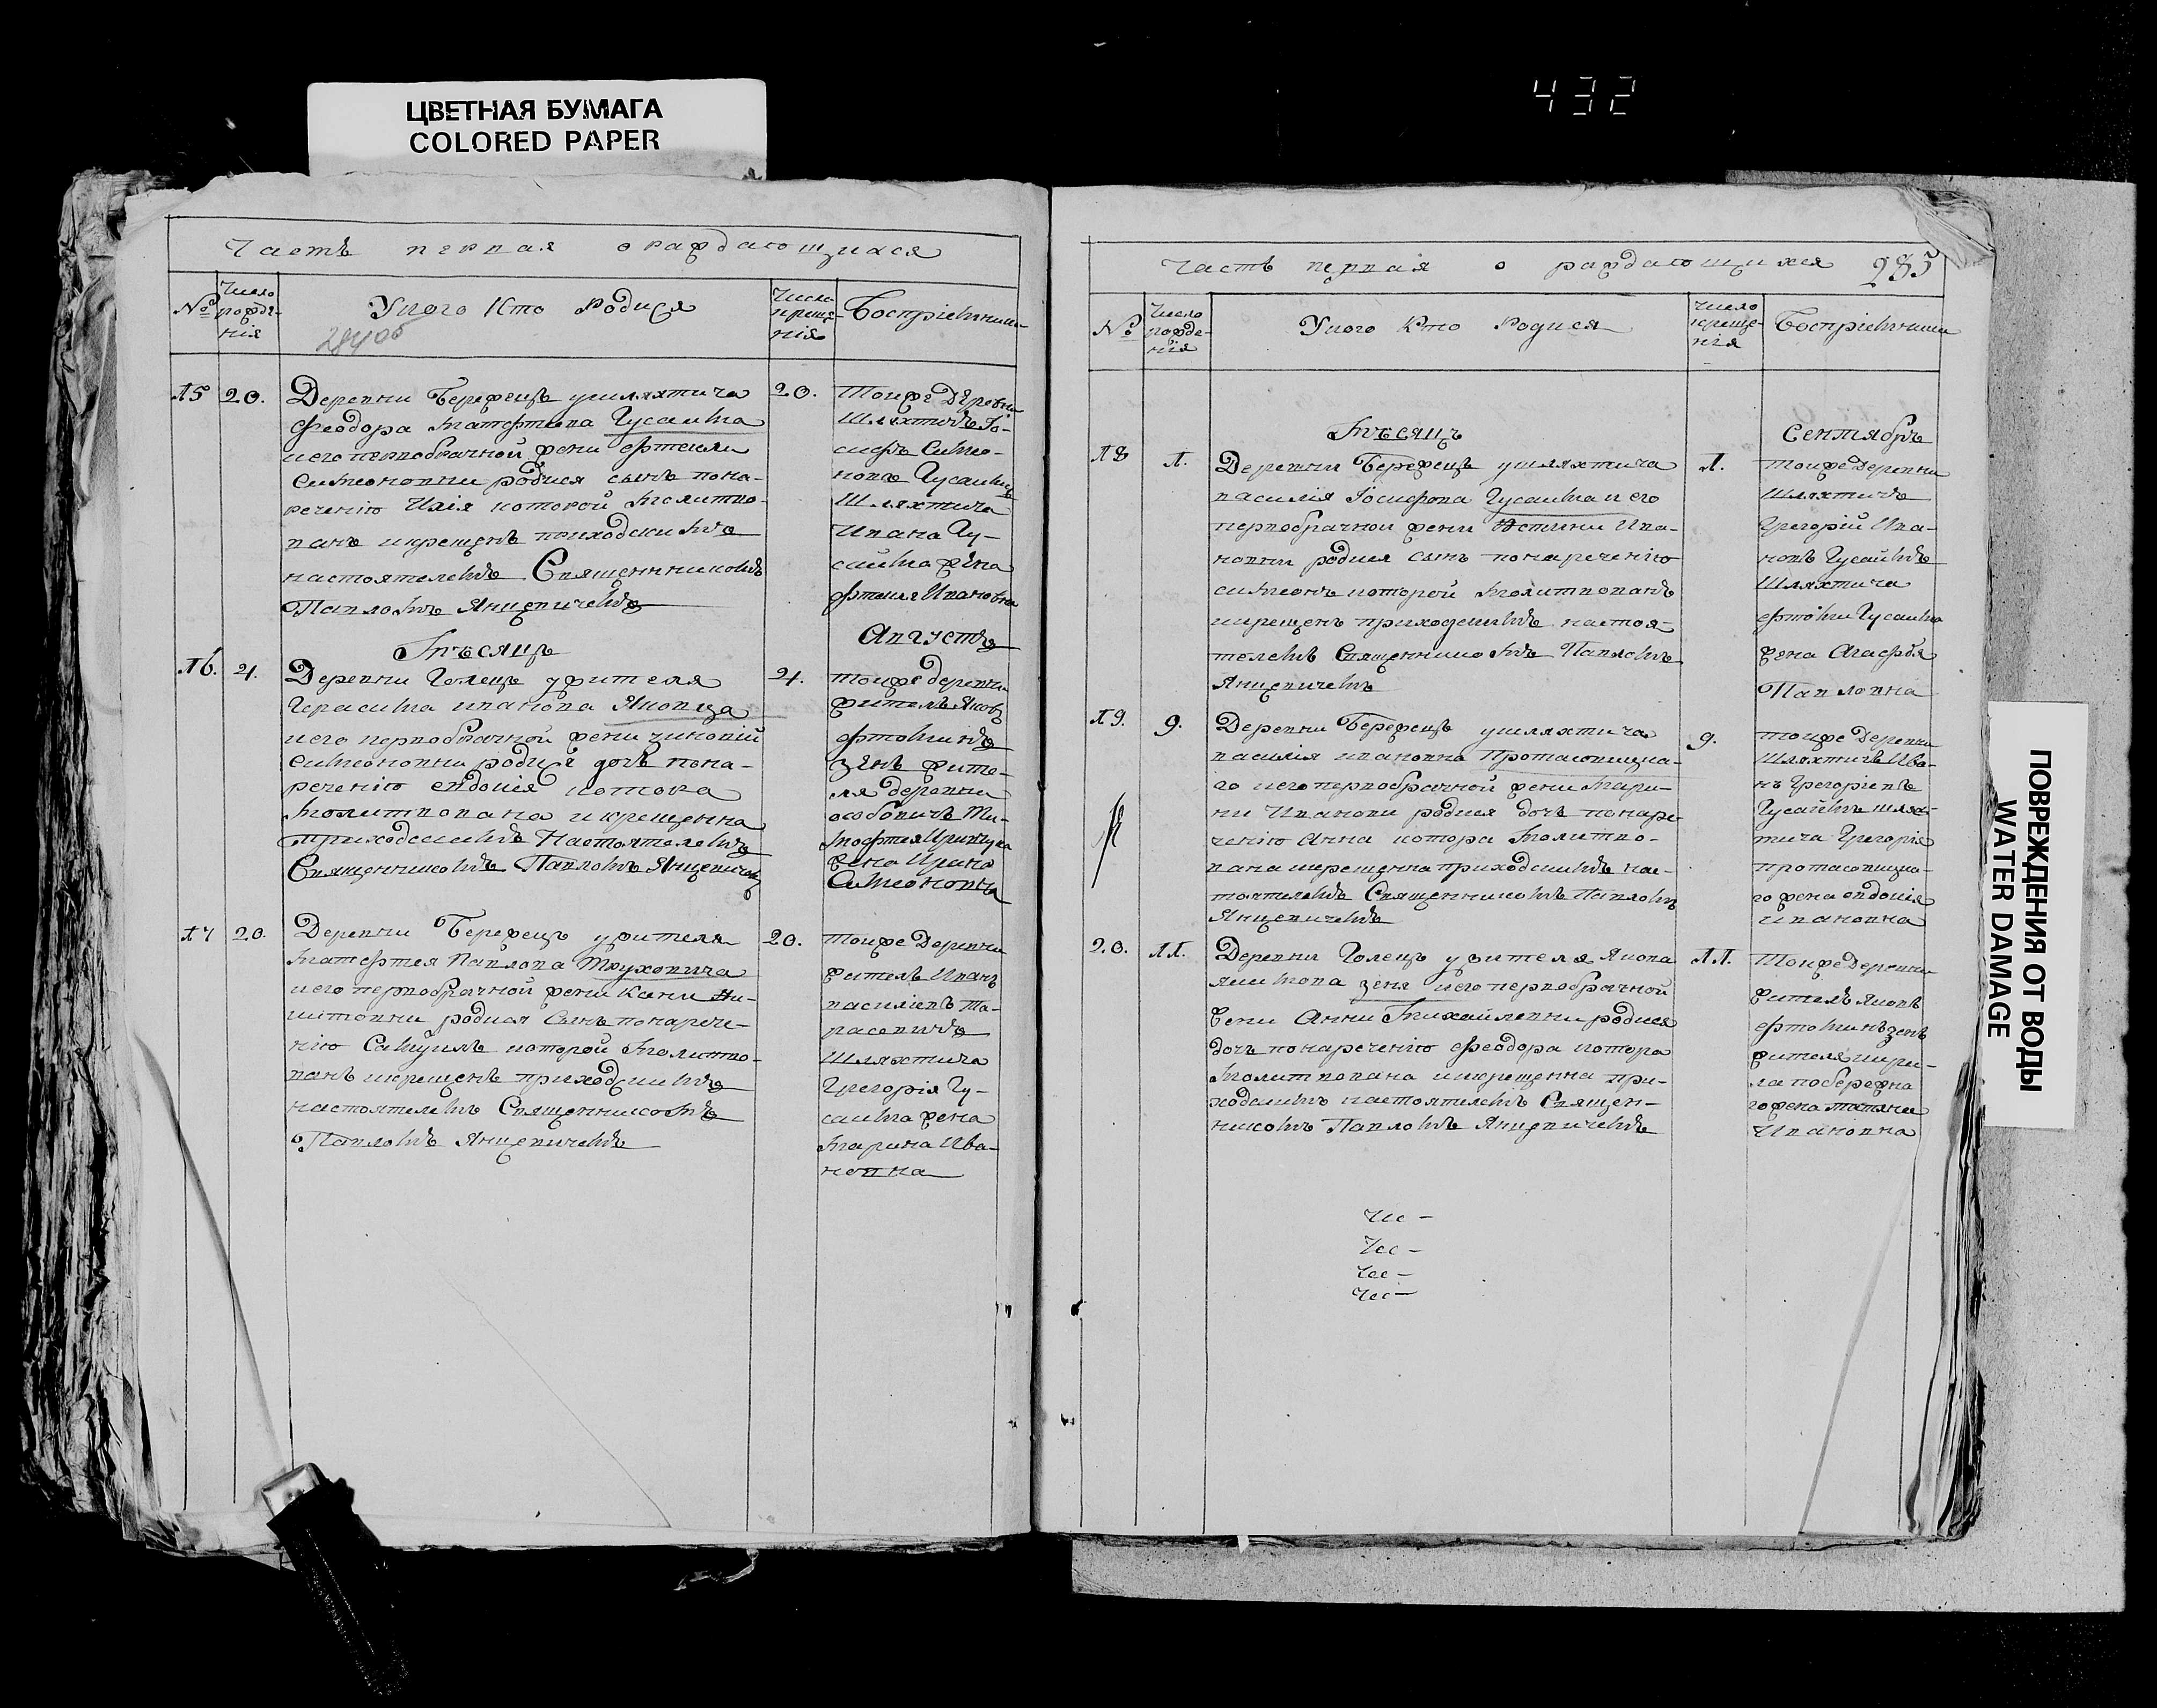 ЦВЕТНАЯ БУМАГА
COLORED PAPER
432
Часть первая о раждающихся
№
Число рожде-
нія
Уного Кто Родися
Число креще-
нія
Воспріемники
15
20.
Деревни Бережецъ ушляхтича
Феодора Матфѣева Гусаима
иего первобрачной жени
Симеоновни родися сынъ пона-
реченію Илія которой молитво-
ванъ икрещенъ приходскимъ
настоятелемъ Священникомъ
Павломъ Янцевичемъ
20.
Тоиже Деревни
Шляхтичъ Іо-
сифъ Симео-
новъ Гусаимъ
Шляхтича
Ивана Гу-
саима жена
Ивановна
Мѣсяцъ
Августъ
16.
21.
Деревни Голецъ ужителя
Герасима иванова Яковца
иего первобрачной жени зиновій
Симеоновни родися дочь пона-
реченію евдокія котора
молитвована икрещенна
приходскимъ Настоятелемъ
Священникомъ Павломъ Янцевичемъ
21.
тоиже деревни
житель Яковъ
ефтоминъ
зенъ жите-
ля деревни
особовичъ Ти-
мофтея
жена Ирина
Симеоновна
17
20.
Деревни Бережецъ ужителя
матфтея Павлова Трухонича
иего первобрачной жени
родися Сынъ понарече-
нію Самуилъ которой молитво-
ванъ икрещенъ приходскимъ
настоятелемъ Священникомъ
Павломъ Янцевичемъ
20.
Тоиже Деревни
житель Иванъ
василіевъ Та-
расевичъ
Шляхтича
Грегорія Гу-
саима жена
Марина Ива-
новна
Часть первая о раждающихся
285
№
Число рожде-
нія
Уного Кто Родися
Число креще-
нія
Воспріемники
Мѣсяцъ
Сентябръ
18
1.
Деревни Бережецъ ушляхтича
василія Іосифова Гусаима иего
первобрачной жени Устини Ива-
новни родися сынъ понареченію
симеонъ которой молитвованъ
икрещенъ приходскимъ настоя-
телемъ Священникомъ Павломъ
Янцевичемъ
1.
тоиже Деревни
Шляхтичъ
Грегорій Ива-
новъ Гусаймъ
Шляхтича
Гусаима
жена Агафія
Павловна
19.
9.
Деревни Бережецъ ушляхтича
василія ивановна Протасовицка-
го иего первобрачной жени Мари-
ни Иванови родися дочь понаре-
ченію Анна котора молитво-
вана икрещенна приходскимъ нас-
тоятелемъ Священникомъ Павломъ
Янцевичемъ
9.
тоиже Деревни
Шляхтичъ Ива-
нъ Грегоріевъ
Гусаймъ шлях-
тича Грегорія
протасовицка-
го жена евдокія
ивановна
20.
11.
Деревни Голецъ ужителя Якова
якимова зеня иего первобрачной
жени Анни Михайлевни родися
дочь понареченію Феодора котора
молитвована икрещенна при-
ходскимъ настоятелемъ Священ-
никомъ Павломъ Янцевичемъ
11.
Тоиже Деревни
житель яковъ
ефтоминъ зенъ
жителя кири-
ла побережна
го жена татяни
Ивановна
ПОВРЕЖДЕНИЯ ОТ ВОДЫ
WATER DAMAGE